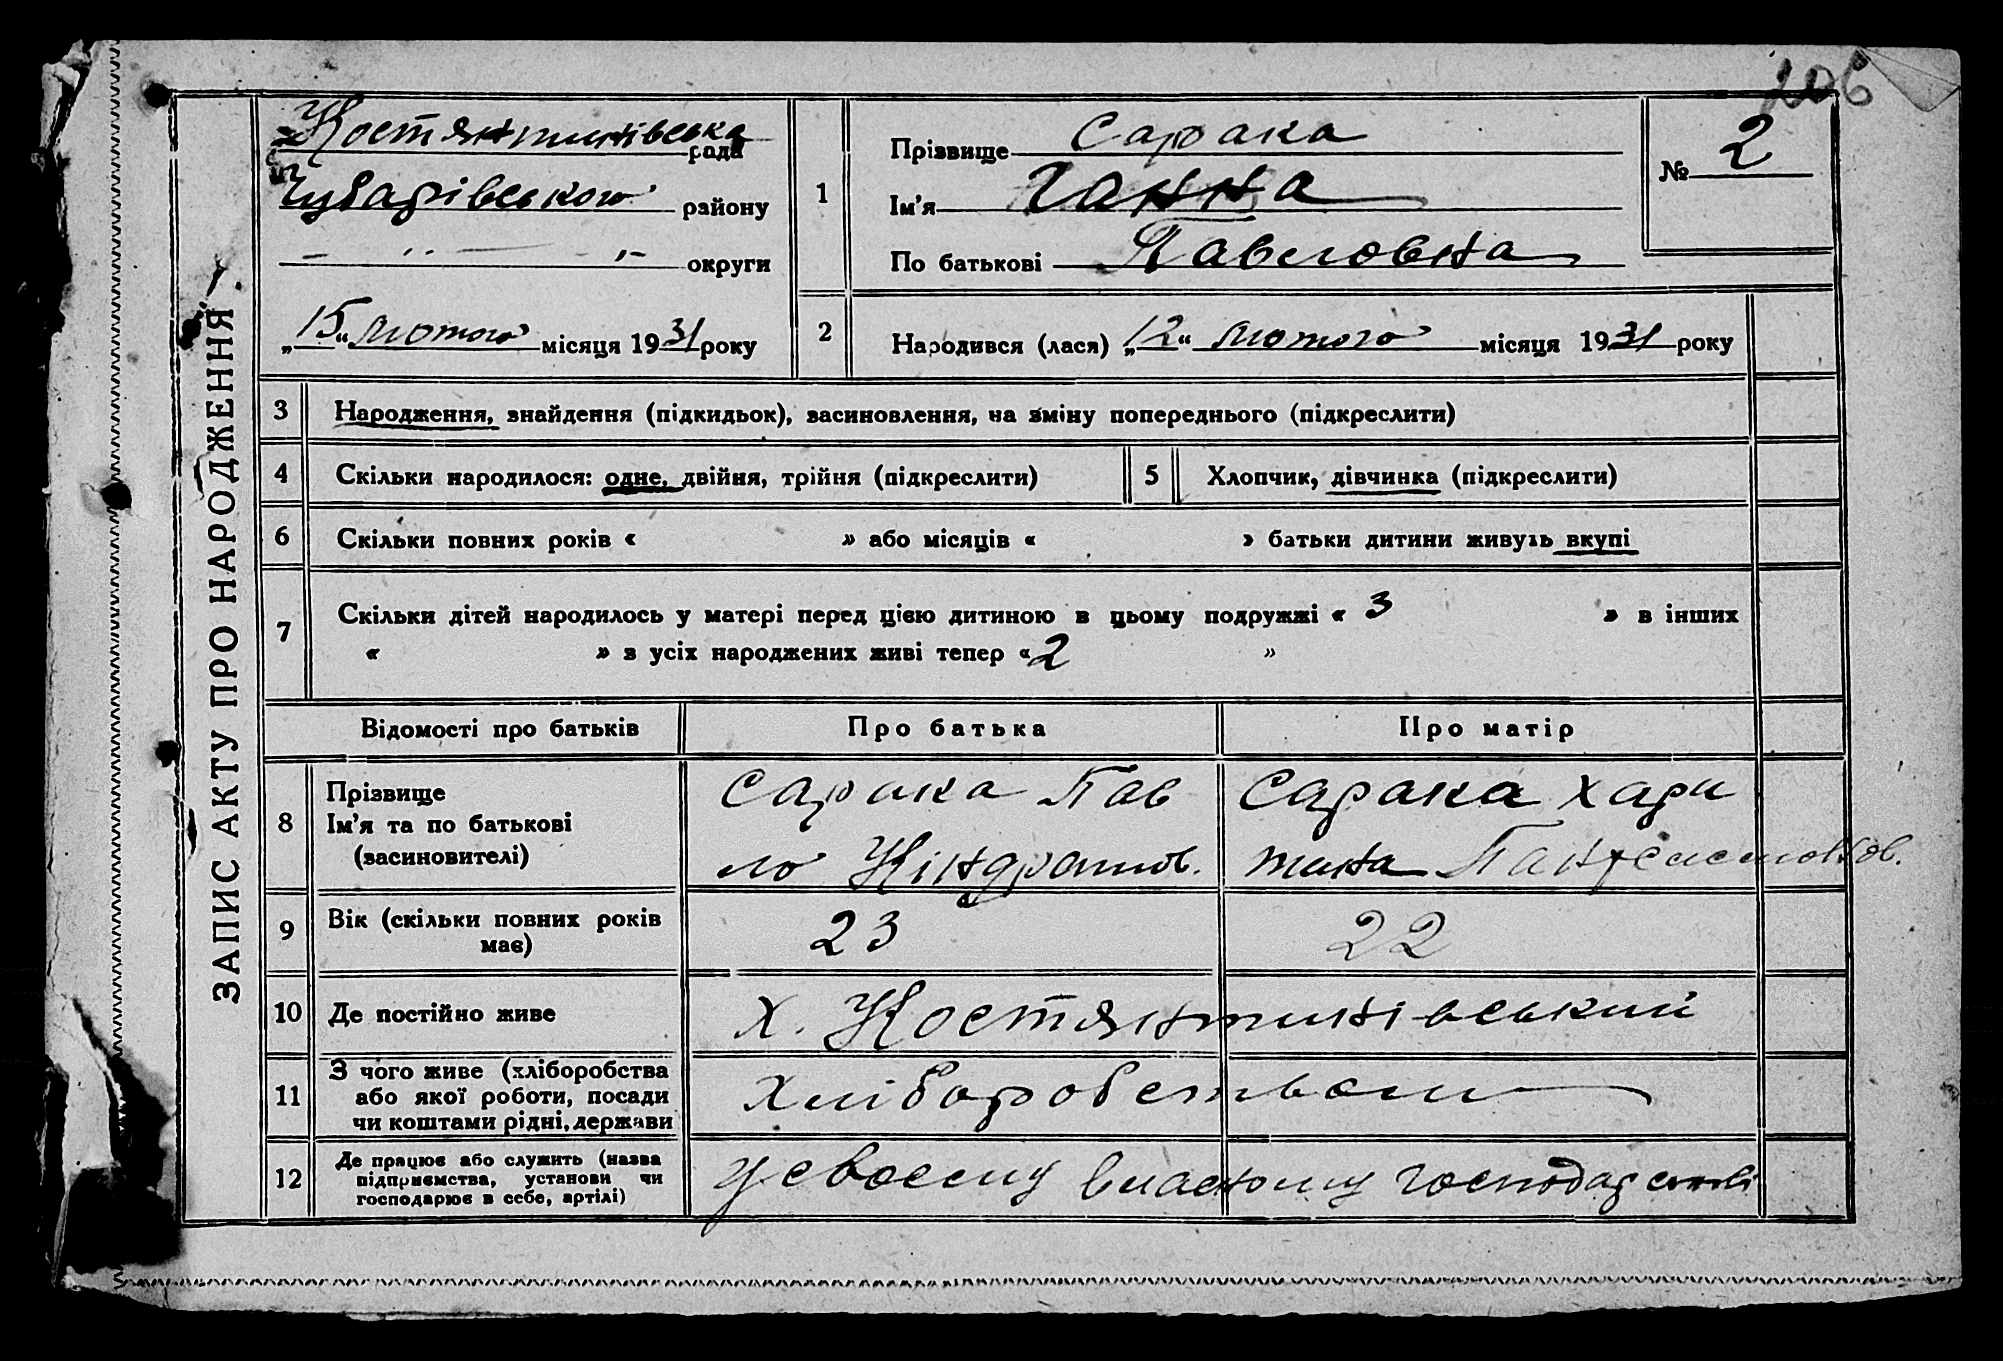 206
ЗАПИС АКТУ ПРО НАРОДЖЕННЯ
Костянтинівська
рада
Чубарівського району
— " — " — округи
„15“ лютого місяця 1931 року
1
Прізвище Сарака
Ім'я Ганна
По батькові Павловна
№ 2
2
Народився (лася) „12“ лютого місяця 1931 року
3 Народження, знайдення (підкидьок), засиновлення, на зміну попереднього (підкреслити)
4 Скільки народилося: одне, двійня, трійня (підкреслити)
5 Хлопчик, дівчинка (підкреслити)
6 Скільки повних років « » або місяців « » батьки дитини живуть вкупі
7 Скільки дітей народилось у матері перед цією дитиною в цьому подружжі « 3 » в інших
« » з усіх народжених живі тепер «2 »
Відомості про батьків
Про батька
Про матір
8
Прізвище
Ім'я та по батькові
(засиновителі)
Сарака Пав
ло Кіндратов.
Сарака Хари
тина
9
Вік (скільки повних років
має)
23
22
10 Де постійно живе
х. Костянтинівський
11
З чого живе (хліборобства
або якої роботи, посади
чи коштами рідні, держави
Хліборобством
12
Де працює або служить (назва
підприємства, установи чи
господарює в себе, артілі)
У своєму власному господарстві